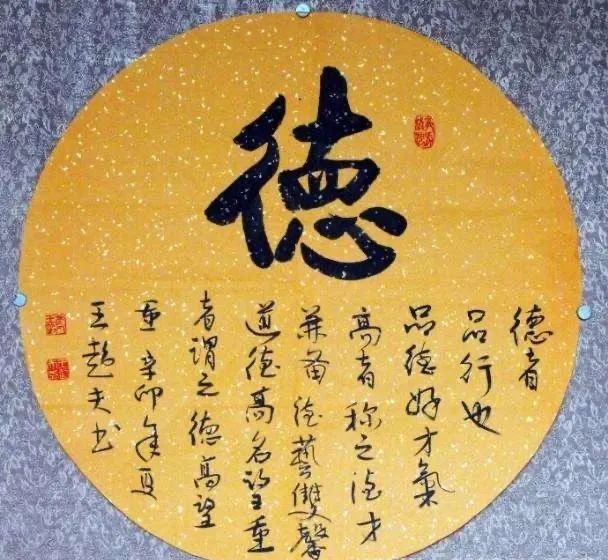 德
德者
品行也
品德好才氣
高者称之德才
兼备德藝雙馨
道德高名望重
者谓之德高望
重 辛卯年夏
王赵夫书